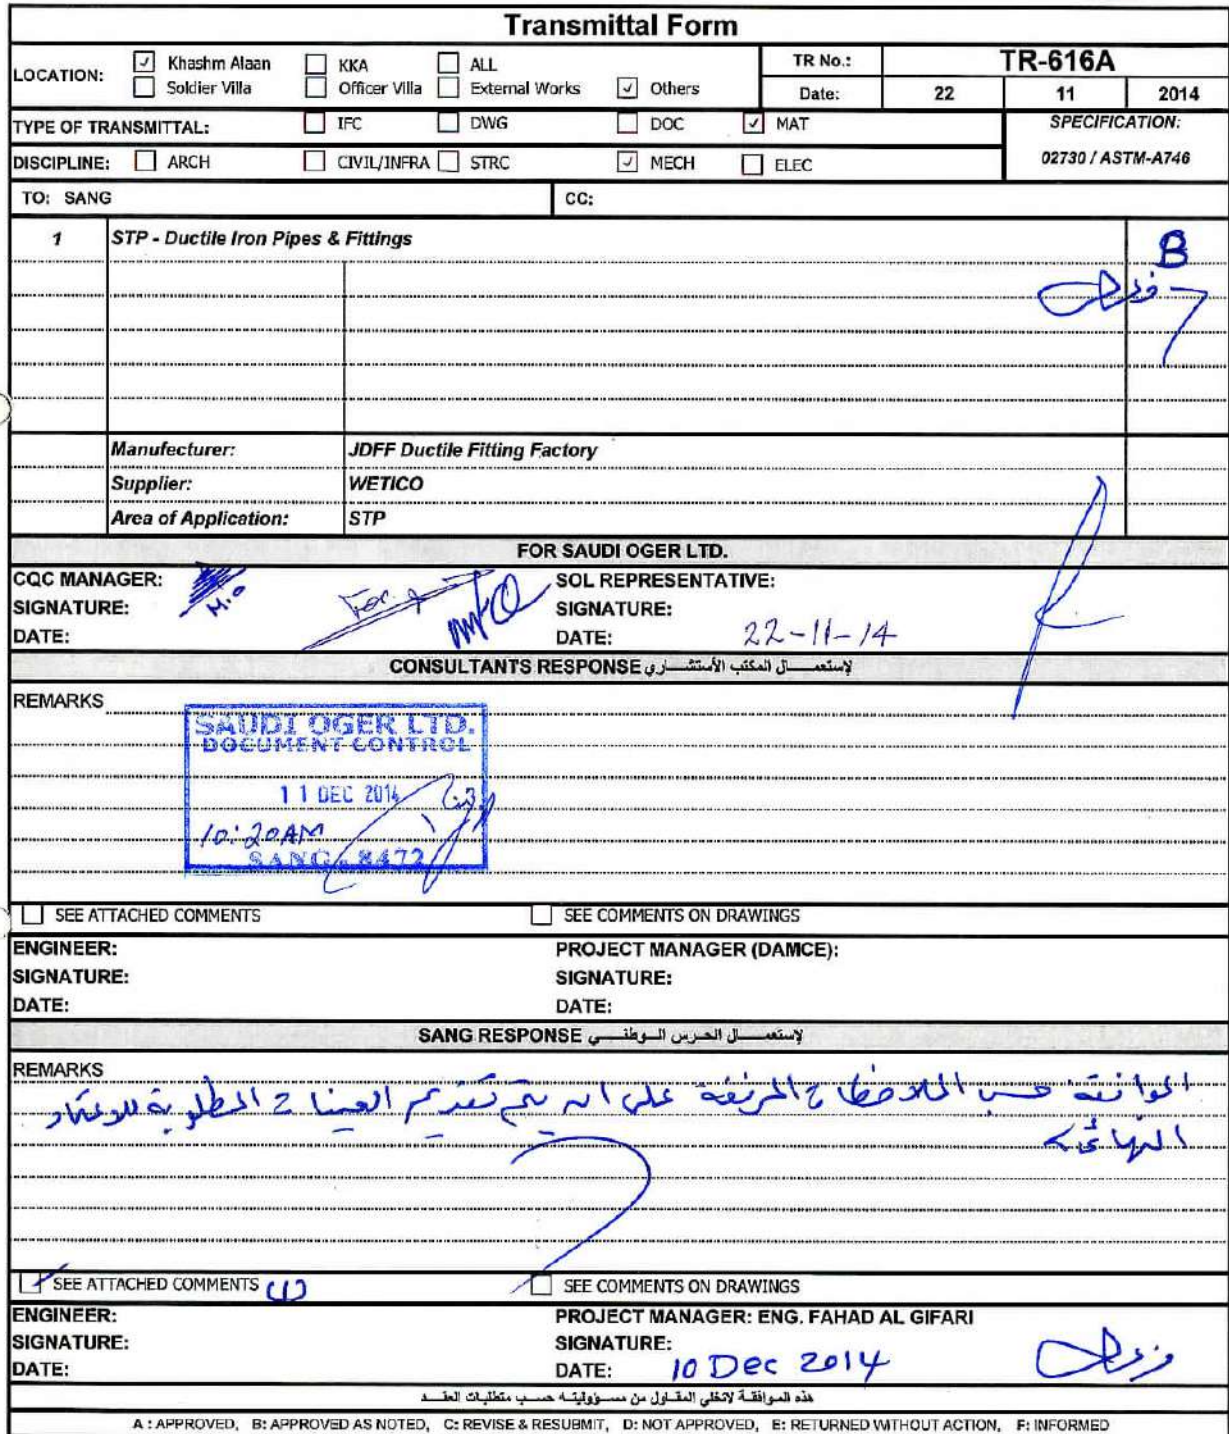 Transmittal Form
LOCATION: Khashm Alaan KKA ALL TR No.: TR-616A
Soldier Villa Officer Villa External Works Others Date: 22 11 2014
TYPE OF TRANSMITTAL: IFC DWG DOC MAT SPECIFICATION:
DISCIPLINE: ARCH CIVIL/INFRA STRC MECH ELEC 02730 / ASTM-A746
TO: SANG CC:
1 STP - Ductile Iron Pipes & Fittings B
Manufecturer: JDFF Ductile Fitting Factory
Supplier: WETICO
Area of Application: STP
FOR SAUDI OGER LTD.
CQC MANAGER: SOL REPRESENTATIVE:
M.O For
SIGNATURE: SIGNATURE:
DATE: DATE: 22-11-14
CONSULTANTS RESPONSE لإستعمـــال المكتب الأستشــاري
REMARKS
SAUDI OGER LTD.
DOCUMENT CONTROL
11 DEC 2014
10:20AM
SANG 8472
SEE ATTACHED COMMENTS SEE COMMENTS ON DRAWINGS
ENGINEER: PROJECT MANAGER (DAMCE):
SIGNATURE: SIGNATURE:
DATE: DATE:
SANG RESPONSE لإستعمـــال الحـرس الـوطنـــي
REMARKS
الموافقة حسب الملاحظات المرفقة على ان يتم تقديم العينات المطلوبة للاعتماد
النهائي
SEE ATTACHED COMMENTS (1) SEE COMMENTS ON DRAWINGS
ENGINEER: PROJECT MANAGER: ENG. FAHAD AL GIFARI
SIGNATURE: SIGNATURE:
DATE: DATE: 10 Dec 2014
هذه الموافقـة لاتخلي المقـاول من مسـؤوليتـه حسـب متطلبات العقـــد
A : APPROVED, B: APPROVED AS NOTED, C: REVISE & RESUBMIT, D: NOT APPROVED, E: RETURNED WITHOUT ACTION, F: INFORMED